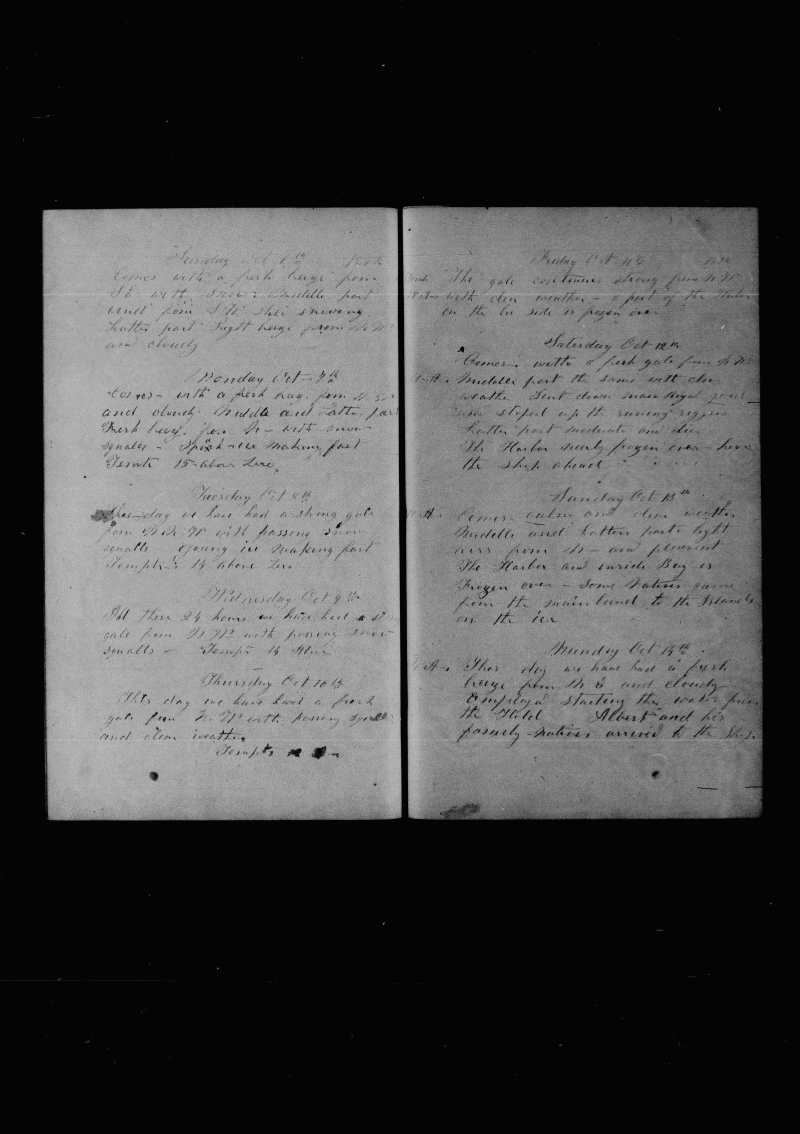 Sunday Oct 6th 1872
Comes with a fresh breeze from
S E with snow: Middle part
wind from S W Still snowing
Latter part light breeze from N W
and cloudy
Monday Oct 7th
Comes with a fresh from N
and cloudy Middle and Latter part
Fresh from N with snow
squalls ice making fast
15 above Zero
Tuesday Oct 8th
This day we have had a strong gale
from N N W with passing snow
squalls young ice making fast
Tempt 14 above Zero
Wednesday Oct 9th
these 24 hours we have had a
gale from N W with passing snow
squalls - Tempt 14 above
Thursday Oct 10th
This day we have had a fresh
gale from N W with passing squalls
and clear weather
Tempts
Friday Oct 11th 1872
The gale continues strong from N W
with clear weather - a part of the Harbor
on the lee side is frozen over
Saturday Oct 12th
Comes with a fresh gale from N W
Middle part the same with clear
weather Sent down main Royal yard
and stoped up the running rigging
Latter part moderate and clear
The Harbor nearly frozen over - hove
the ship ahead
Sunday Oct 13th
Comes calm and clear weather
Middle and Latter parts light
airs from N - and pleasent
The Harbor and inside Bay is
Frozen over - Some natives came
from the main land to the Islands
on the ice
Monday Oct 14th
This day we have had a fresh
breeze from N E and cloudy
Employd starting the water from
the Hold Albert and his
family - natives arrived to the Ship